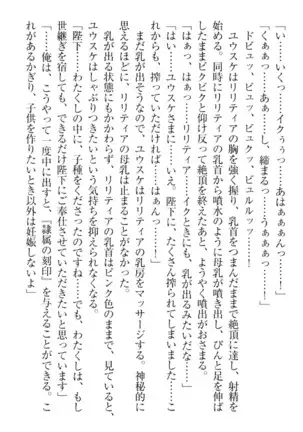 「い……いくっ……イクぅぅっ……あはぁぁぁんっ！」
「くぁぁっ……あぁっ……し、締まるっ……うぁぁぁっ……」
ドビュッ、ビュルッ、ビュクッ、ビュルルルッ……！
ユウスケはリリティアの胸を強く握り、乳首をつまんだままで絶頂に達し、射精を
始める。同時にリリティアの乳首から噴水のように母乳が噴き出し、ぴんと足を伸ば
したままビクビクと仰け反って絶頂を終えたあと、ようやく噴出がおさまった。
「はぁっ、はぁっ……リリティア……イクときにも、乳が出るみたいだな……」
「はぁっ……ユウスケさまに……いえ。陛下に、たくさん搾られてしまいましたのに
……もっと、搾っていただければ……はぁんっ……！」
まだ乳が出そうなので、ユウスケはリリティアの乳房をマッサージする。神秘的に
思えるほどに、リリティアの母乳は止まることがなかった。
乳が出る状態にもかかわらず、リリティアの乳首はピンク色のままで、見ていると、
ユウスケはしゃぶりつきたいという気持ちを抑えられなくなる。
「陛下……わたくしの中に、子種をくださったのですね……でも、わたくしは、もし
世継ぎを宿しても、できるだけ陛下にご奉仕させていただきたいと思っています」
「……俺は、こうやって一度中に出すと、『隷属の刻印』を与えることができる。こ
れがあるかぎり、子供を作りたいとき以外は妊娠しないよ」